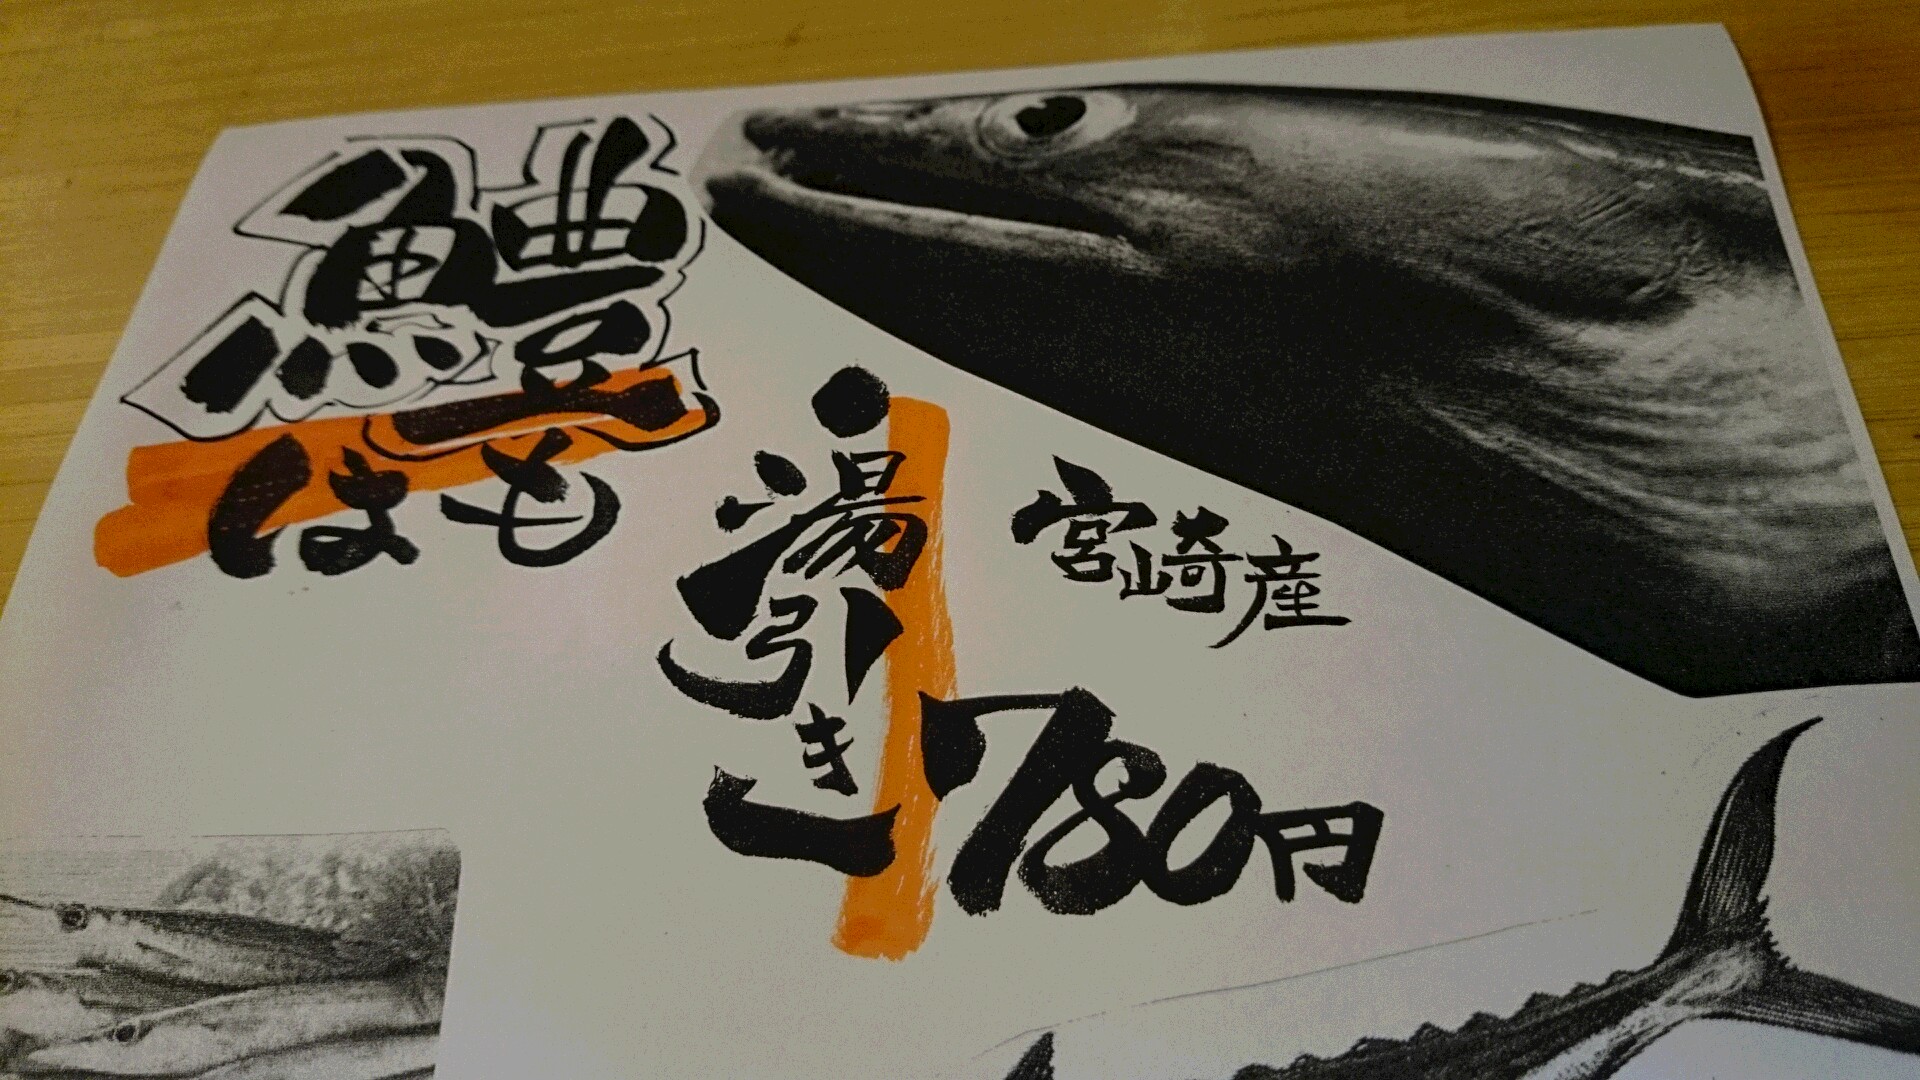 鱧
はも
湯引き
宮崎産
780円